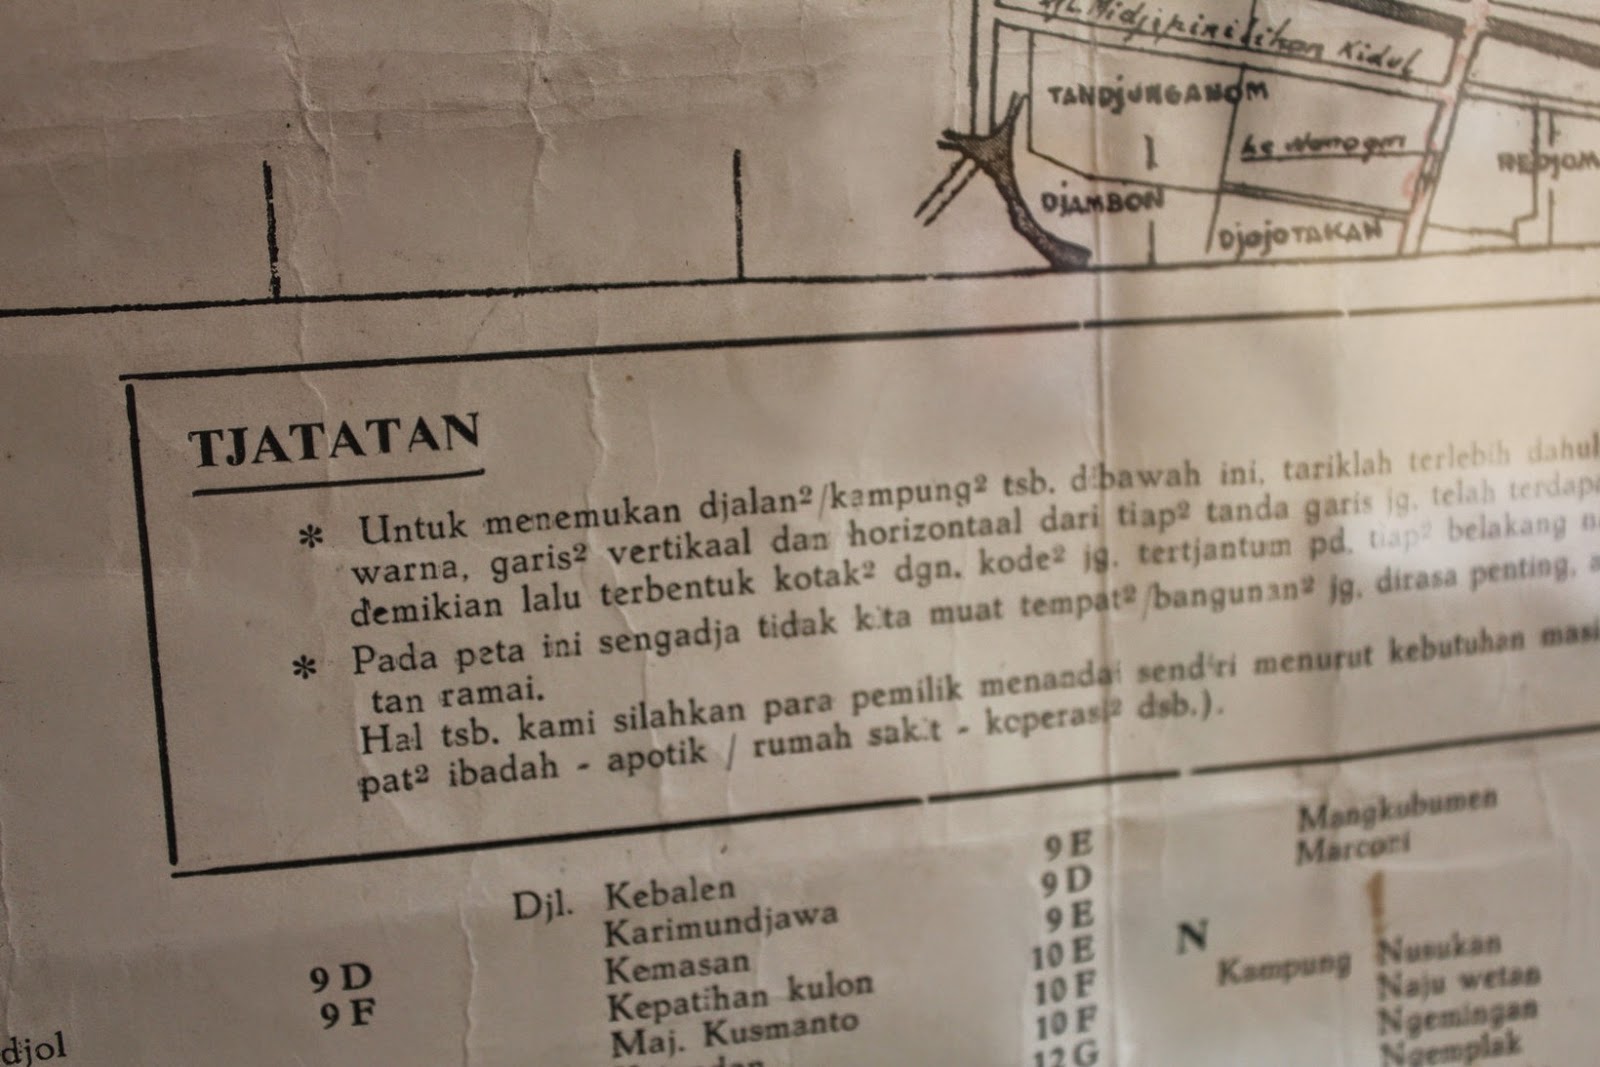 Kidul
TANDJUNGANOM
DJAMBON
DJOJOTAKAN
REDJOM
TJATATAN
* Untuk menemukan djalan²/kampung² tsb. dibawah ini, tariklah terlebih dahul
warna, garis² vertikaal dan horizontaal dari tiap² tanda garis jg. telah terdapa
demikian lalu terbentuk kotak² dgn. kode² jg. tertjantum pd. tiap² belakang n
* Pada peta ini sengadja tidak kita muat tempat²/bangunan² jg. dirasa penting, a
tan ramai.
Hal tsb. kami silahkan para pemilik menandai sendiri menurut kebutuhan masi
pat² ibadah - apotik / rumah sakit - koperasi² dsb.).
9 D
9 F
djol
Djl. Kebalen 9 E
Karimundjawa 9 D
Kemasan 9 E
Kepatihan kulon 10 E
Maj. Kusmanto 10 F
10 F
12 G
Mangkubumen
Marconi
N
Kampung Nusukan
Naju wetan
Ngemingan
Ngemplak